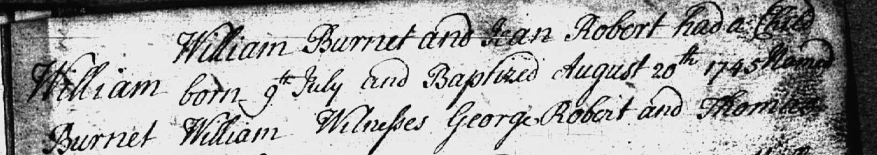 William Burnet and Jean Robert had a Child
William born 9th July and Baptized August 20th 1745 Named
Burnet William Witnesses George Robert and Thomas